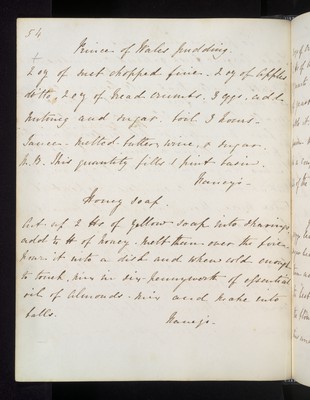 54
Prince of Wales pudding.
2 oz of suet chopped fine - 2 oz of apples
ditto, 2 oz of bread crumbs, 3 eggs, add
nutmeg and sugar. boil 3 hours -
Sauce - melted butter, wine, & sugar.
N.B. This quantity fills 1 pint basin.
Nancy's -
Honey Soap.
Cut up 2 lbs of yellow soap into shavings,
add ½ lb of honey - melt them over the fire -
pour it into a dish and when cold enough
to touch, mix in six pennyworth of essential
oil of almonds - mix and make into
balls.
Nancy's.